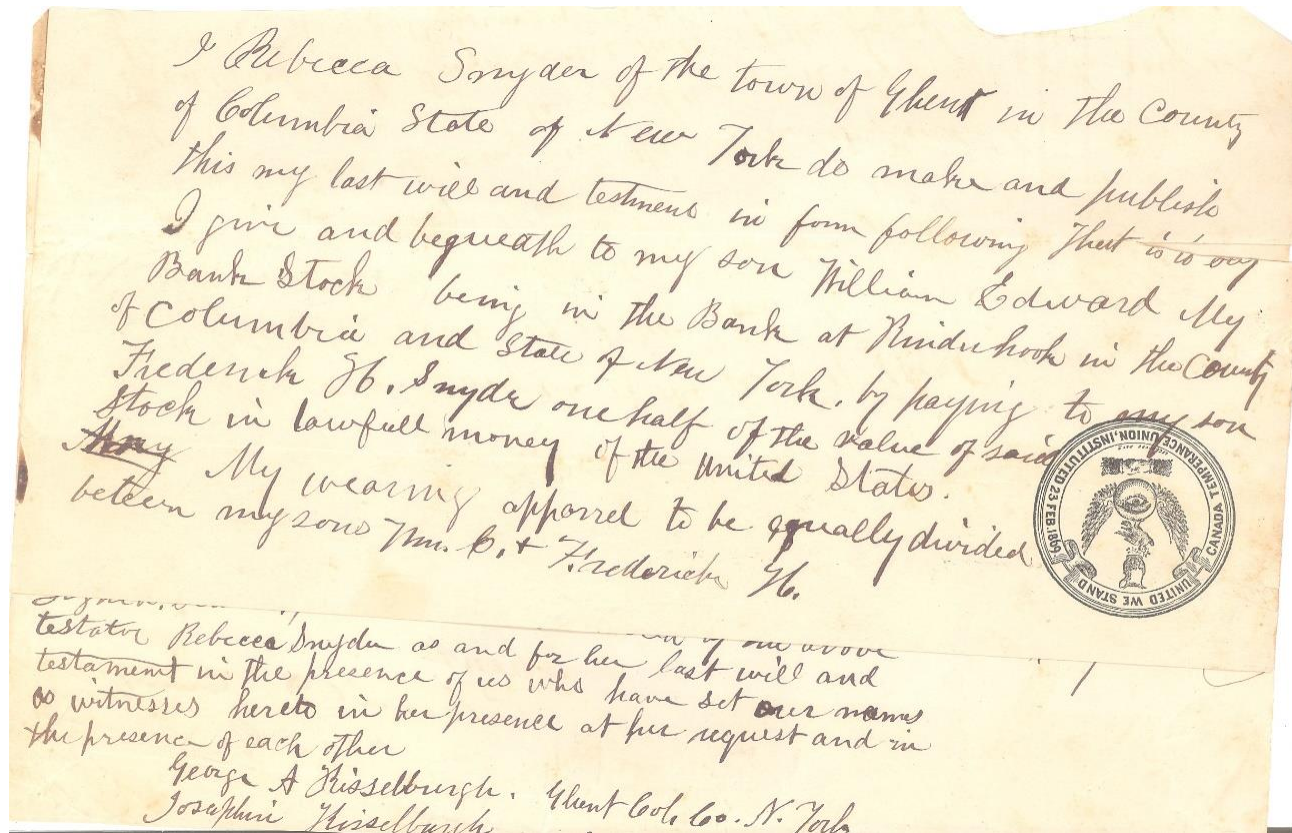 I Rebecca Snyder of the town of Ghent in the County
of Columbia State of New York do make and publish
this my last will and testment in form following That is to say
I give and bequeath to my son William Edward My
Bank Stock being in the Bank at Kinderhook in the County
of Columbia and State of New York. by paying to my son
Frederick H. Snyder one half of the value of said
Stock in lawfull money of the United States.
My wearing apparrel to be equally divided
beteen my sons Wm. E. + Frederick H.
UNITED WE STAND
CANADA TEMPERANCE UNION, INSTITUTED 23 FEB. 1869
the above
testator Rebecca Snyder as and for her last will and
testament in the presence of us who have set our names
as witnesses hereto in her presence at her request and in
the presence of each other
George A Kisselburgh. Ghent Col. Co. N. York
Josephine Kisselburgh